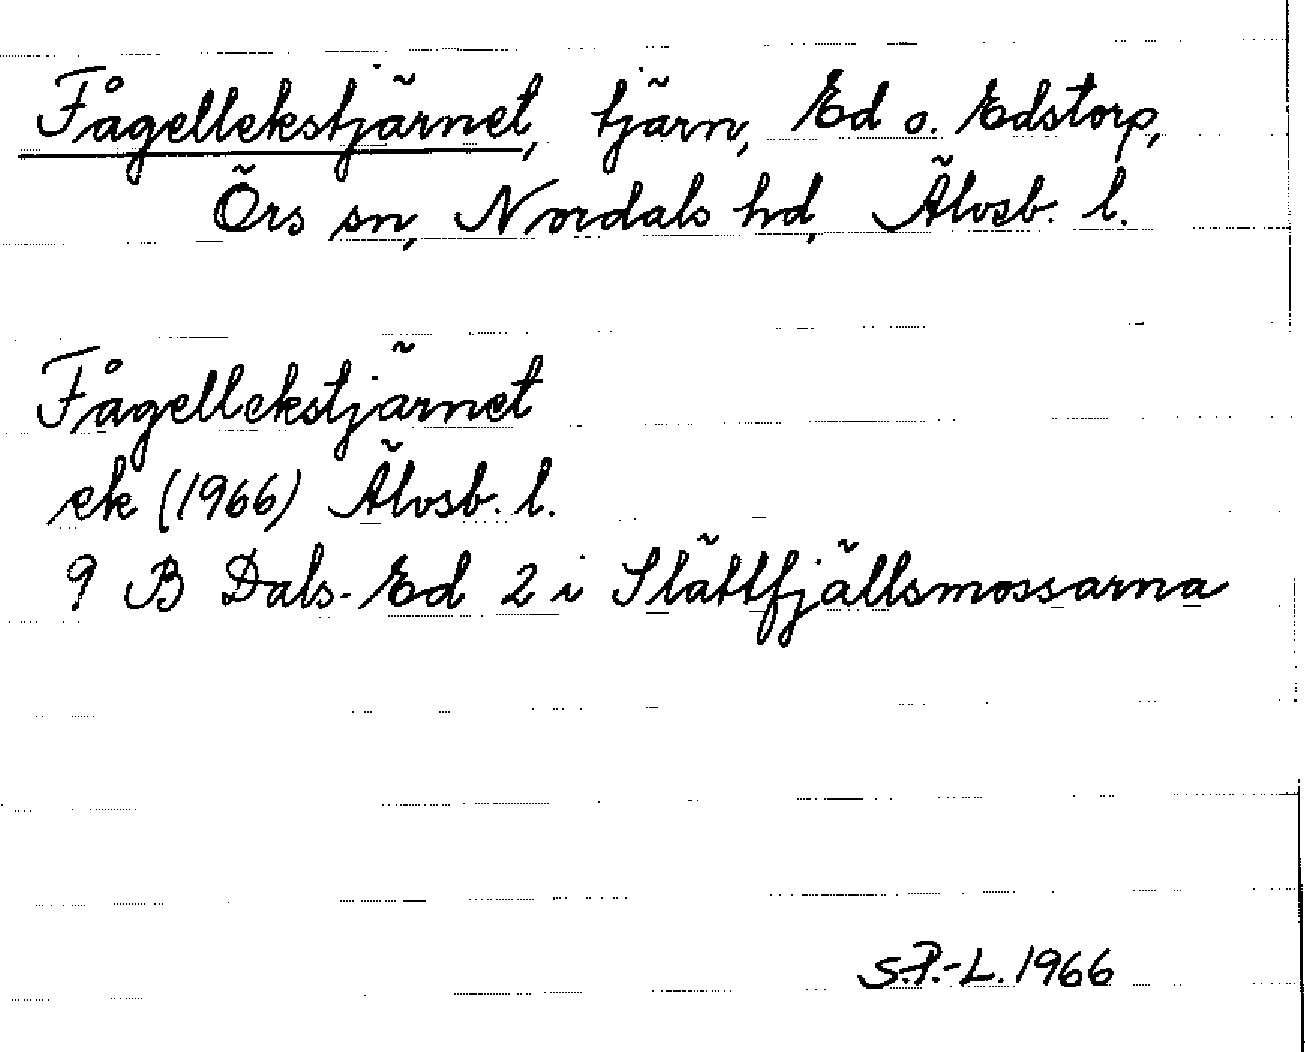 Fågellekstjärnet, tjärn, Ed o. Edstorp,
Örs sn, Nordals hd, Älvsb. l.
Fågellekstjärnet
ek (1966) Älvsb. l.
9 B Dals-Ed 2 i Slättfjällsmossarna
S.P.-L. 1966